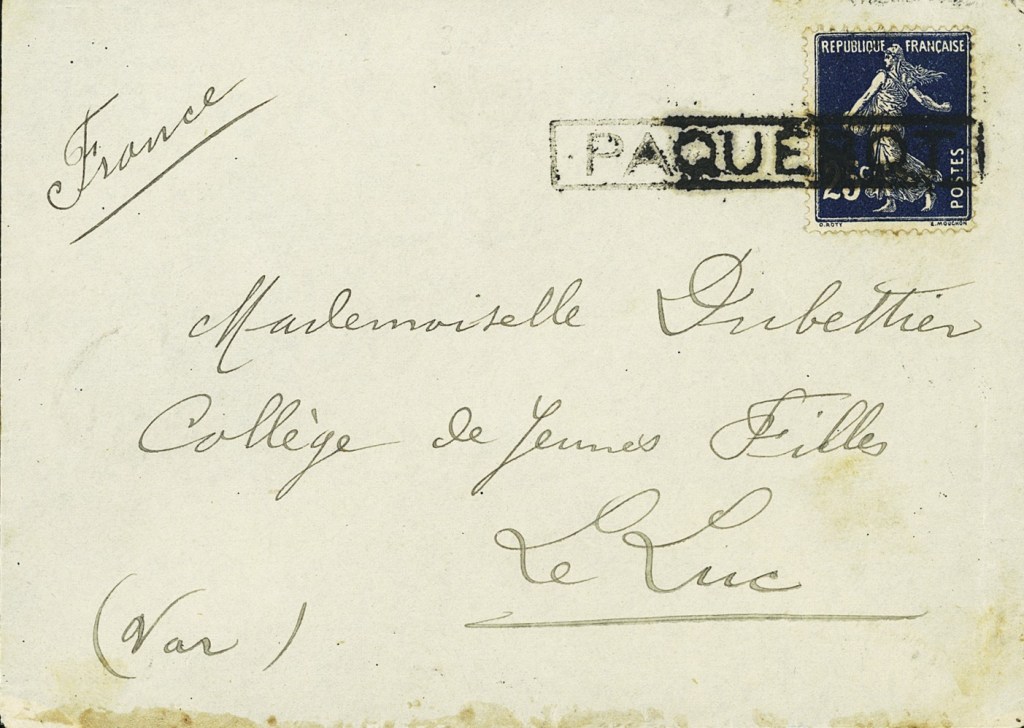 France
REPUBLIQUE FRANÇAISE
PAQUEBOT
25c
POSTES
O.ROTY E.MOUCHON
Mademoiselle Dubettier
Collège de Jeunes Filles
Le Luc
(Var)